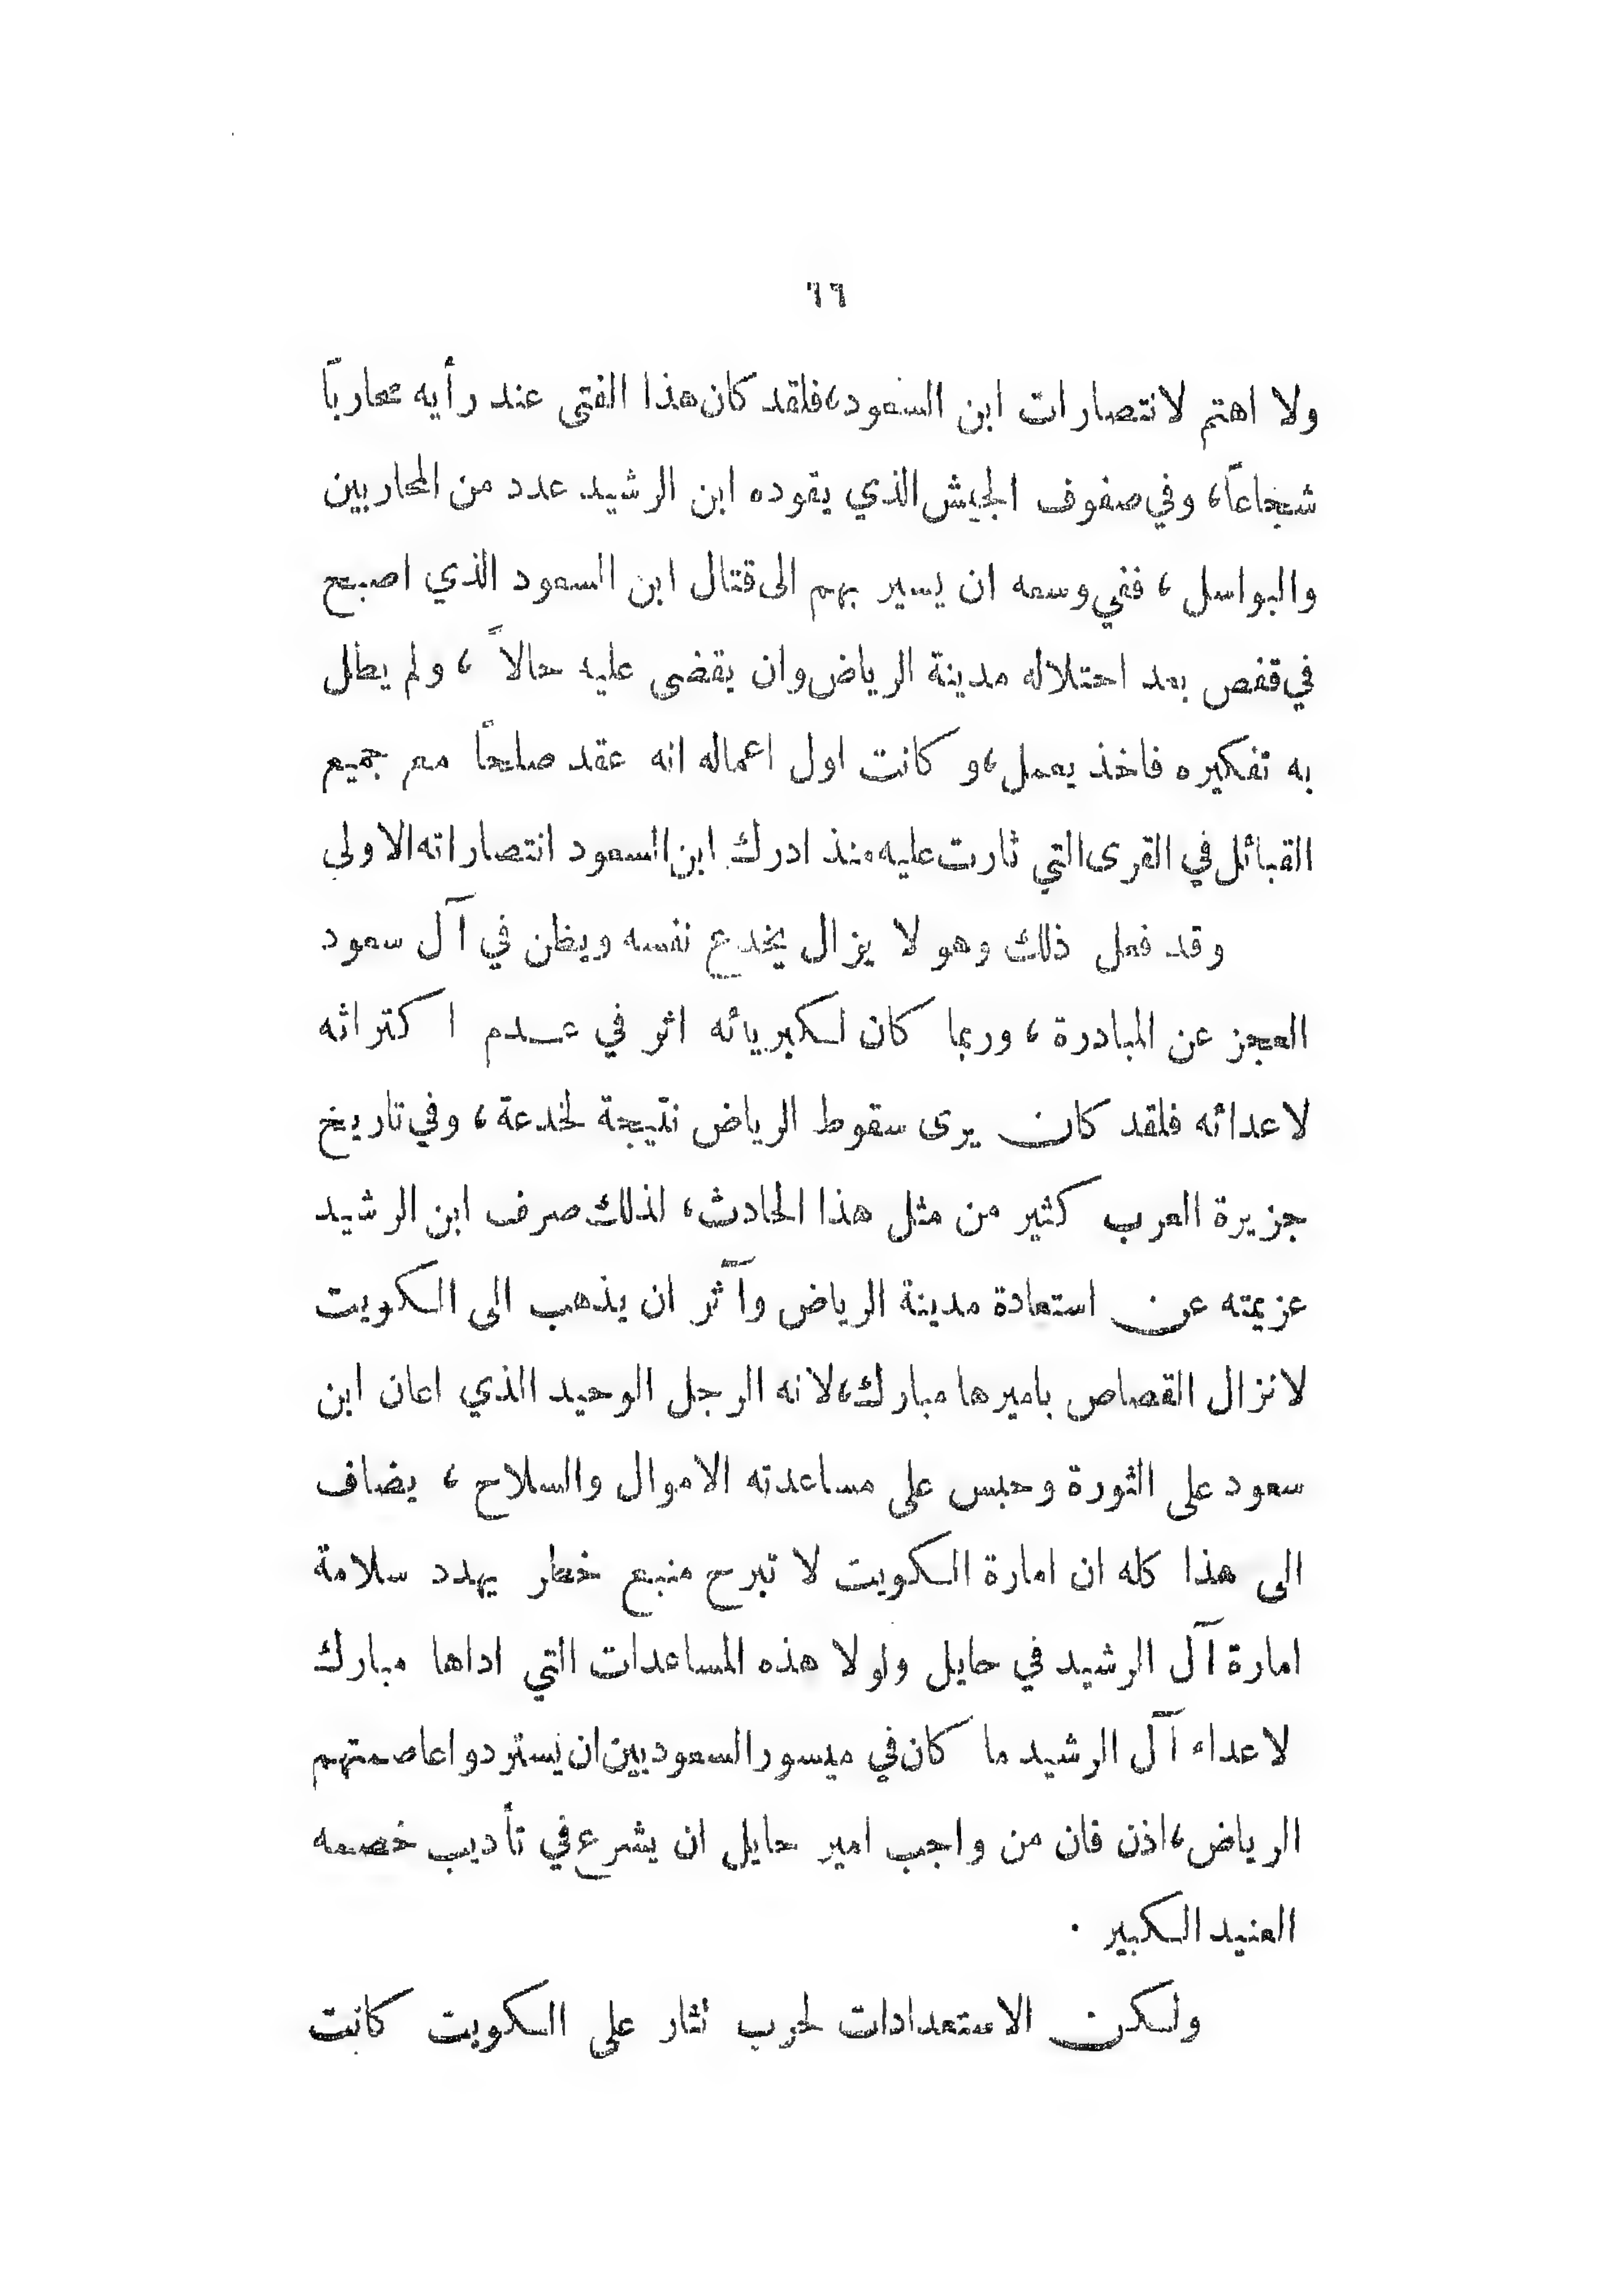 ٦٦
ولا اهتم لانتصارات ابن السعود، فلقد كان هذا الفتى عند رأيه محارباً
شجاعاً، وفي صفوف الجيش الذي يقوده ابن الرشيد عدد من المحاربين
والبواسل ، ففي وسعه ان يسير بهم الى قتال ابن السعود الذي اصبح
في قفص بعد احتلاله مدينة الرياض وان يقضى عليه حالاً ، ولم يطل
به تفكيره فاخذ يعمل، و كانت اول اعماله انه عقد صلحاً مع جميع
القبائل في القرى التي ثارت عليه منذ ادرك ابن السعود انتصاراته الاولى
وقد فعل ذلك وهو لا يزال يخدع نفسه ويظن في آل سعود
العجز عن المبادرة ، وربما كان لكبريائه اثر في عـدم اكتراثه
لاعدائه فلقد كان يرى سقوط الرياض نتيجة لخدعة ، وفي تاريخ
جزيرة العرب كثير من مثل هذا الحادث، لذلك صرف ابن الرشيد
عزيمته عن استعادة مدينة الرياض وآثر ان يذهب الى الكويت
لانزال القصاص باميرها مبارك، لانه الرجل الوحيد الذي اعان ابن
سعود على الثورة وحبس على مساعدته الاموال والسلاح ، يضاف
الى هذا كله ان امارة الكويت لا تبرح منبع خطر يهدد سلامة
امارة آل الرشيد في حايل ولولا هذه المساعدات التي اداها مبارك
لاعداء آل الرشيد ما كان في ميسور السعوديين ان يستردوا عاصمتهم
الرياض، اذن فان من واجب امير حايل ان يشرع في تأديب خصمه
العنيد الكبير .
ولكن الاستعدادات لحرب تثار على الكويت كانت